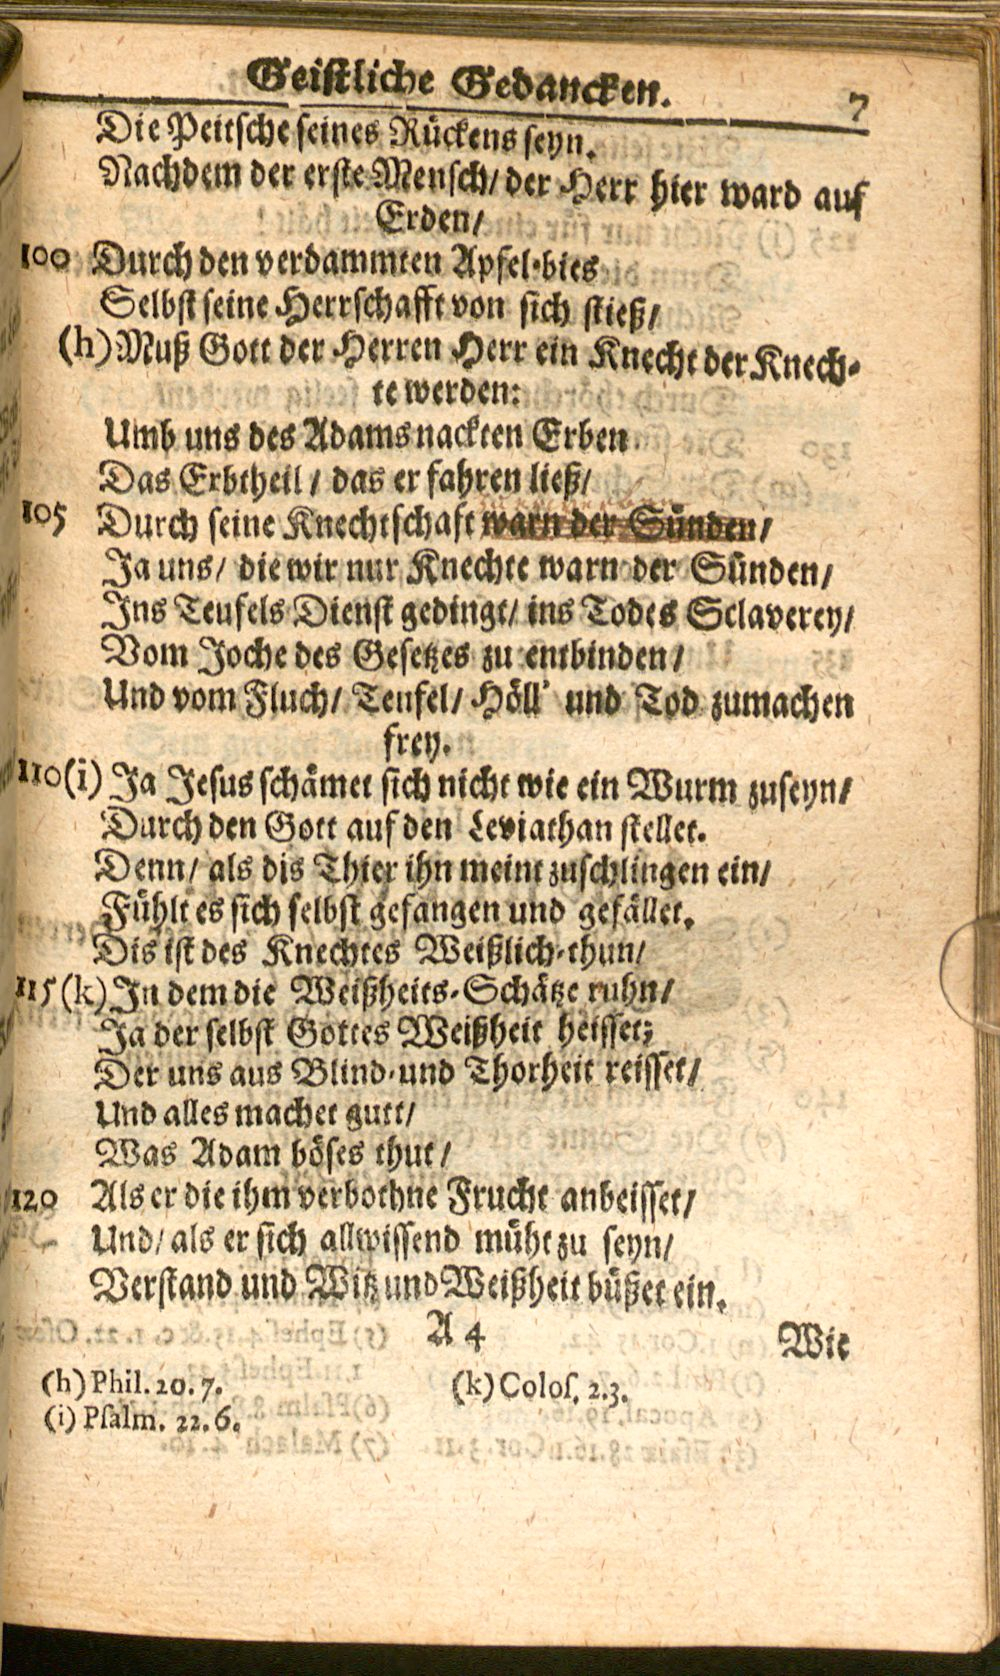 Geistliche Gedancken. 7
Die Peitsche seines Rückens seyn.
Nachdem der erste Mensch/ der Herr hier ward auf
Erden/
100 Durch den verdammten Apfel-bies
Selbst seine Herrschafft von sich stieß/
(h) Muß Gott der Herren Herr ein Knecht der Knech-
te werden:
Umb uns des Adams nackten Erben
Das Erbtheil / das er fahren ließ/
105 Durch seine Knechtschaft warn der Sünden/
Ja uns/ die wir nur Knechte warn der Sünden/
Ins Teufels Dienst gedingt/ ins Todes Sclaverey/
Vom Joche des Gesetzes zu entbinden/
Und vom Fluch/ Teufel/ Höll' und Tod zumachen
frey.
110 (i) Ja Jesus schämet sich nicht wie ein Wurm zuseyn/
Durch den Gott auf den Leviathan stellet.
Denn/ als dis Thier ihn meint zuschlingen ein/
Fühlt es sich selbst gefangen und gefället.
Dis ist des Knechtes Weißlich-thun/
115 (k) In dem die Weißheits-Schätze ruhn/
Ja der selbst Gottes Weißheit heisset;
Der uns aus Blind-und Thorheit reisset/
Und alles machet gutt/
Was Adam böses thut/
120 Als er die ihm verbothne Frucht anbeisset/
Und/ als er sich allwissend müht zu seyn/
Verstand und Witz und Weißheit büßet ein.
A 4 Wie
(h) Phil. 20. 7. (k) Colos. 2. 3.
(i) Psalm. 22. 6.